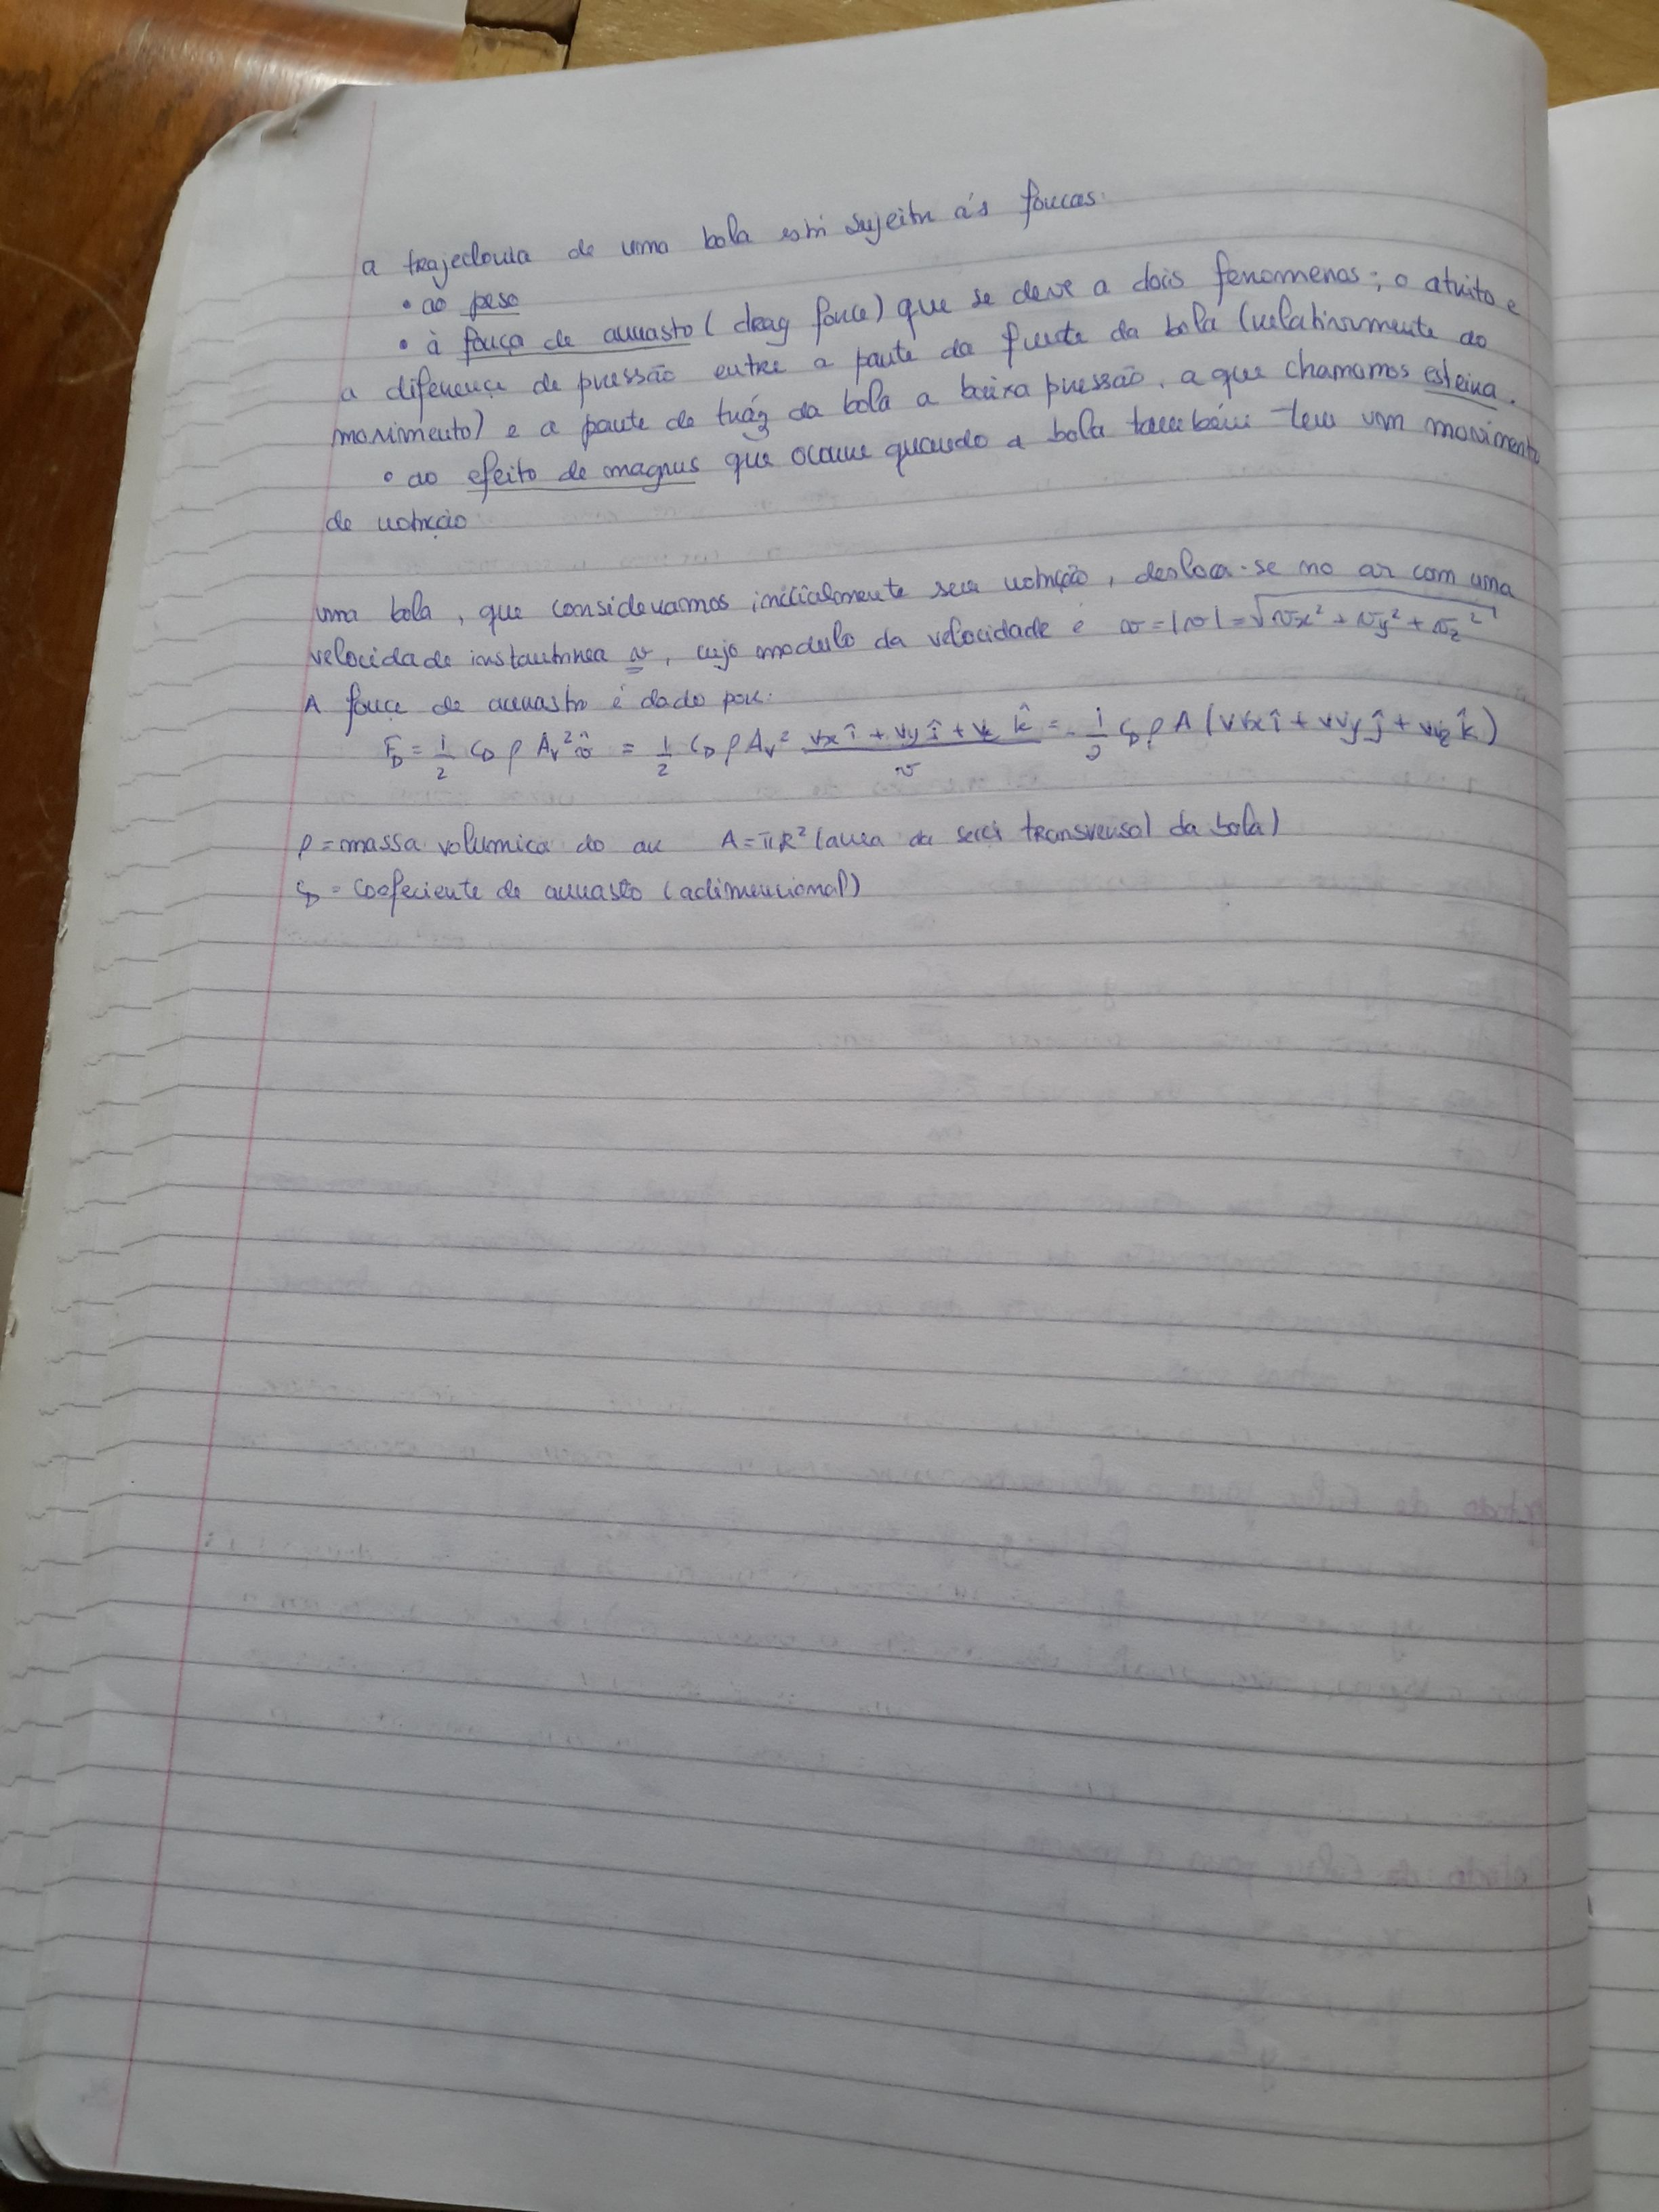 a trajectoria de uma bola está sujeita às forcas:
• ao peso
• à força de arrasto (drag force) que se deve a dois fenomenos; o atrito e
a diferença de pressão entre a parte da frente da bola (relativamente ao
movimento) e a parte de tráz da bola a baixa pressão, a que chamamos esteira.
• ao efeito de magnus que ocorre quando a bola também tem um movimento
de rotação
uma bola, que consideramos inicialmente sem rotação, desloca-se no ar com uma
velocidade instantânea v, cujo modulo da velocidade é v = |v| = √vx² + vy² + vz²
A força de arrasto é dado por:
F_D = 1/2 C_D ρ A v² v̂ = 1/2 C_D ρ A v² (vx î + vy ĵ + vz k̂)/v = - 1/2 C_D ρ A (v vx î + v vy ĵ + v vz k̂)
ρ = massa volumica do ar A = πR² (area da transversal da bola)
C_D = coefeciente de arrasto (adimencional)